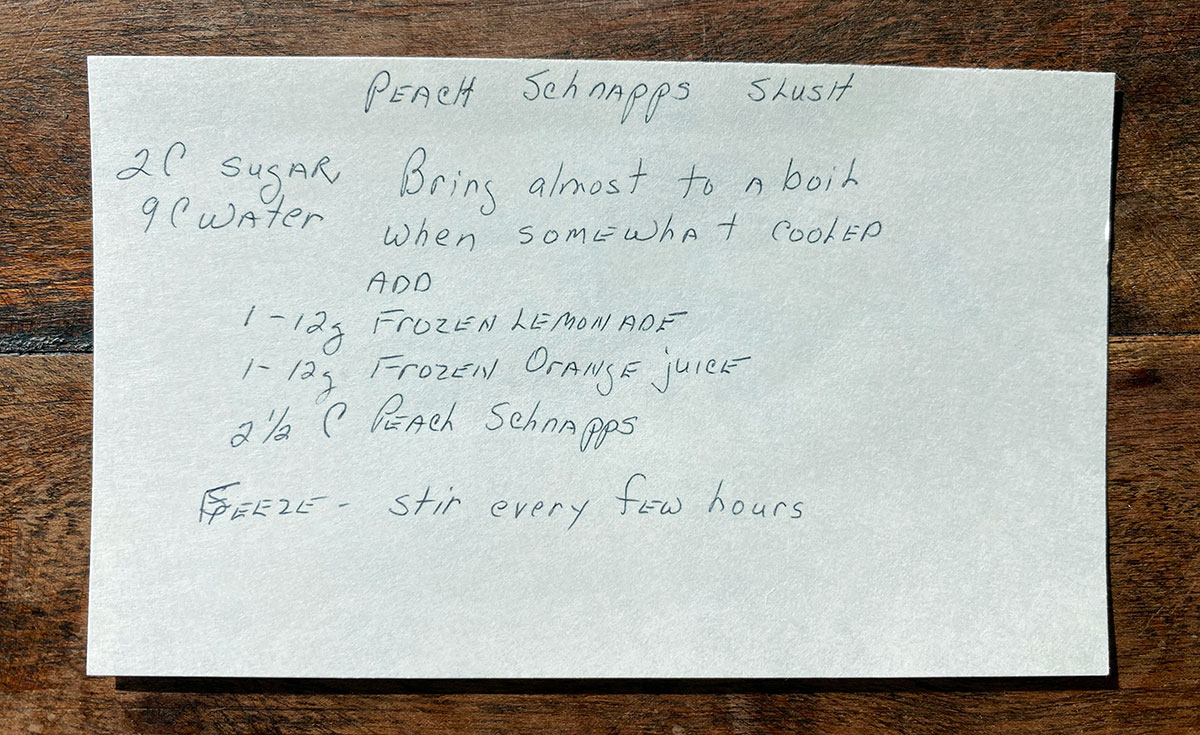 PEACH SchNAPPS SLUSH
2C SUgAR Bring almost to A boiL
9 C WAter when SOMEWhAt COOLED
ADD
1-12g FROZEN LEMONADE
1-12g FrOZEN OrANgE juiCE
2 1/2 C PEACh SchnAPPS
FrEEZE - stir every fEW hours